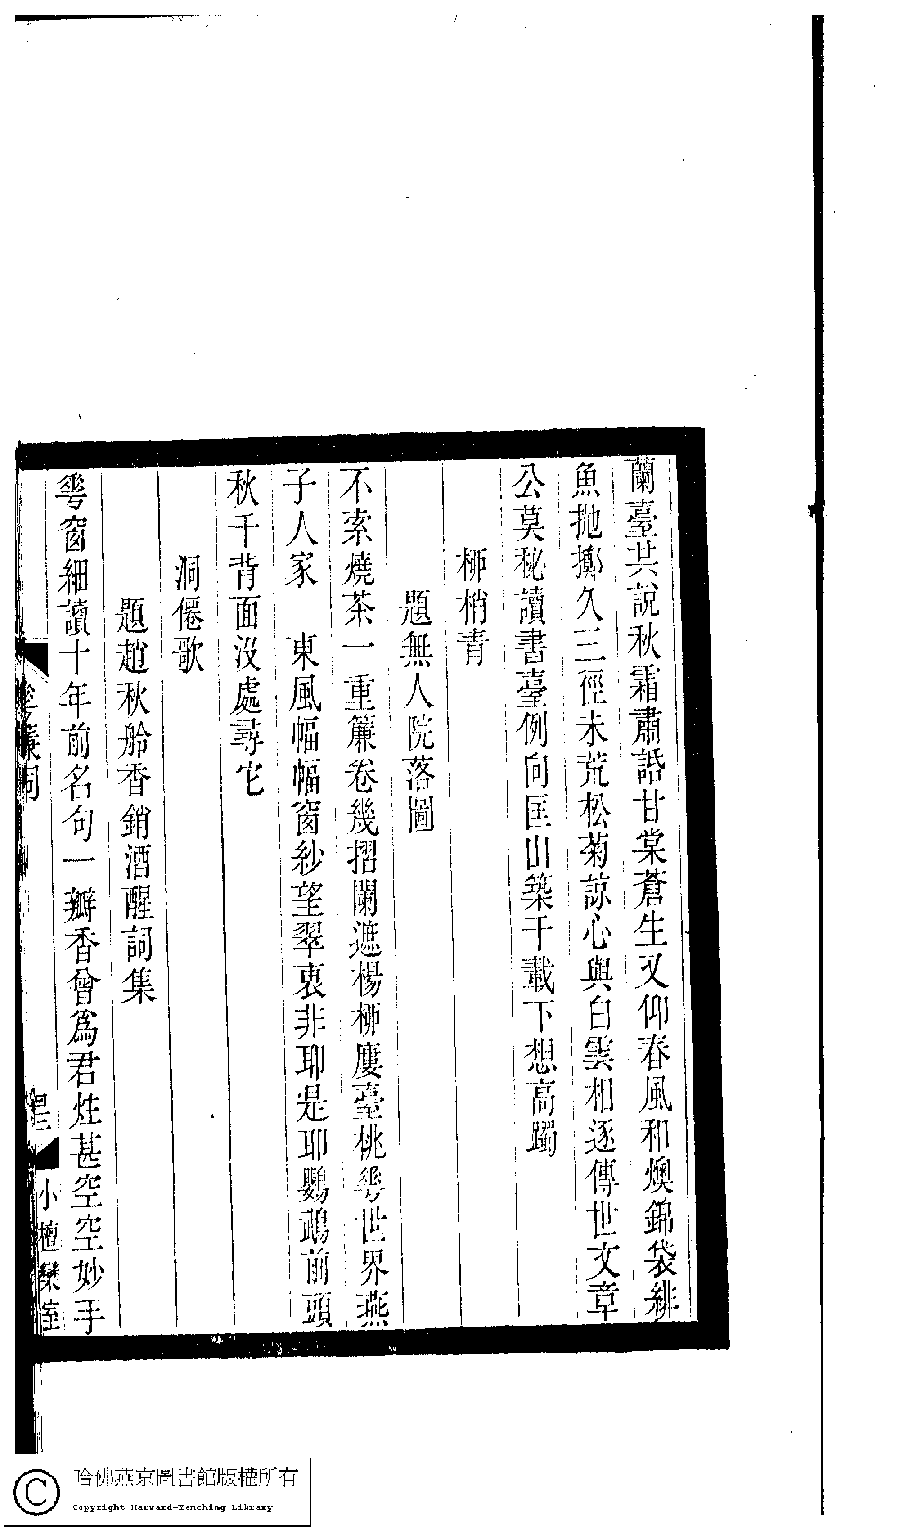 蘭臺共說秋霜肅話甘棠蒼生又仰春風和燠錦袋緋
魚抛擲久三徑未荒松菊諒心與白雲相逐傳世文章
公莫秘讀書臺例向匡山築千載下想高躅
柳梢青
題無人院落圖
不索燒茶一重簾卷幾摺闌遮楊柳廔臺桃蕚世界燕
子人家　東風幅幅窗紗望翠衷非耶是耶鸚鵡前頭
秋千背面沒處尋它
洞僊歌
題趙秋舲香銷酒醒詞集
蕚窗細讀十年前名句一瓣香曾爲君炷甚空空妙手
簾詞
小檀欒室
哈佛燕京圖書館版權所有
Copyright Harvard-Yenching Library